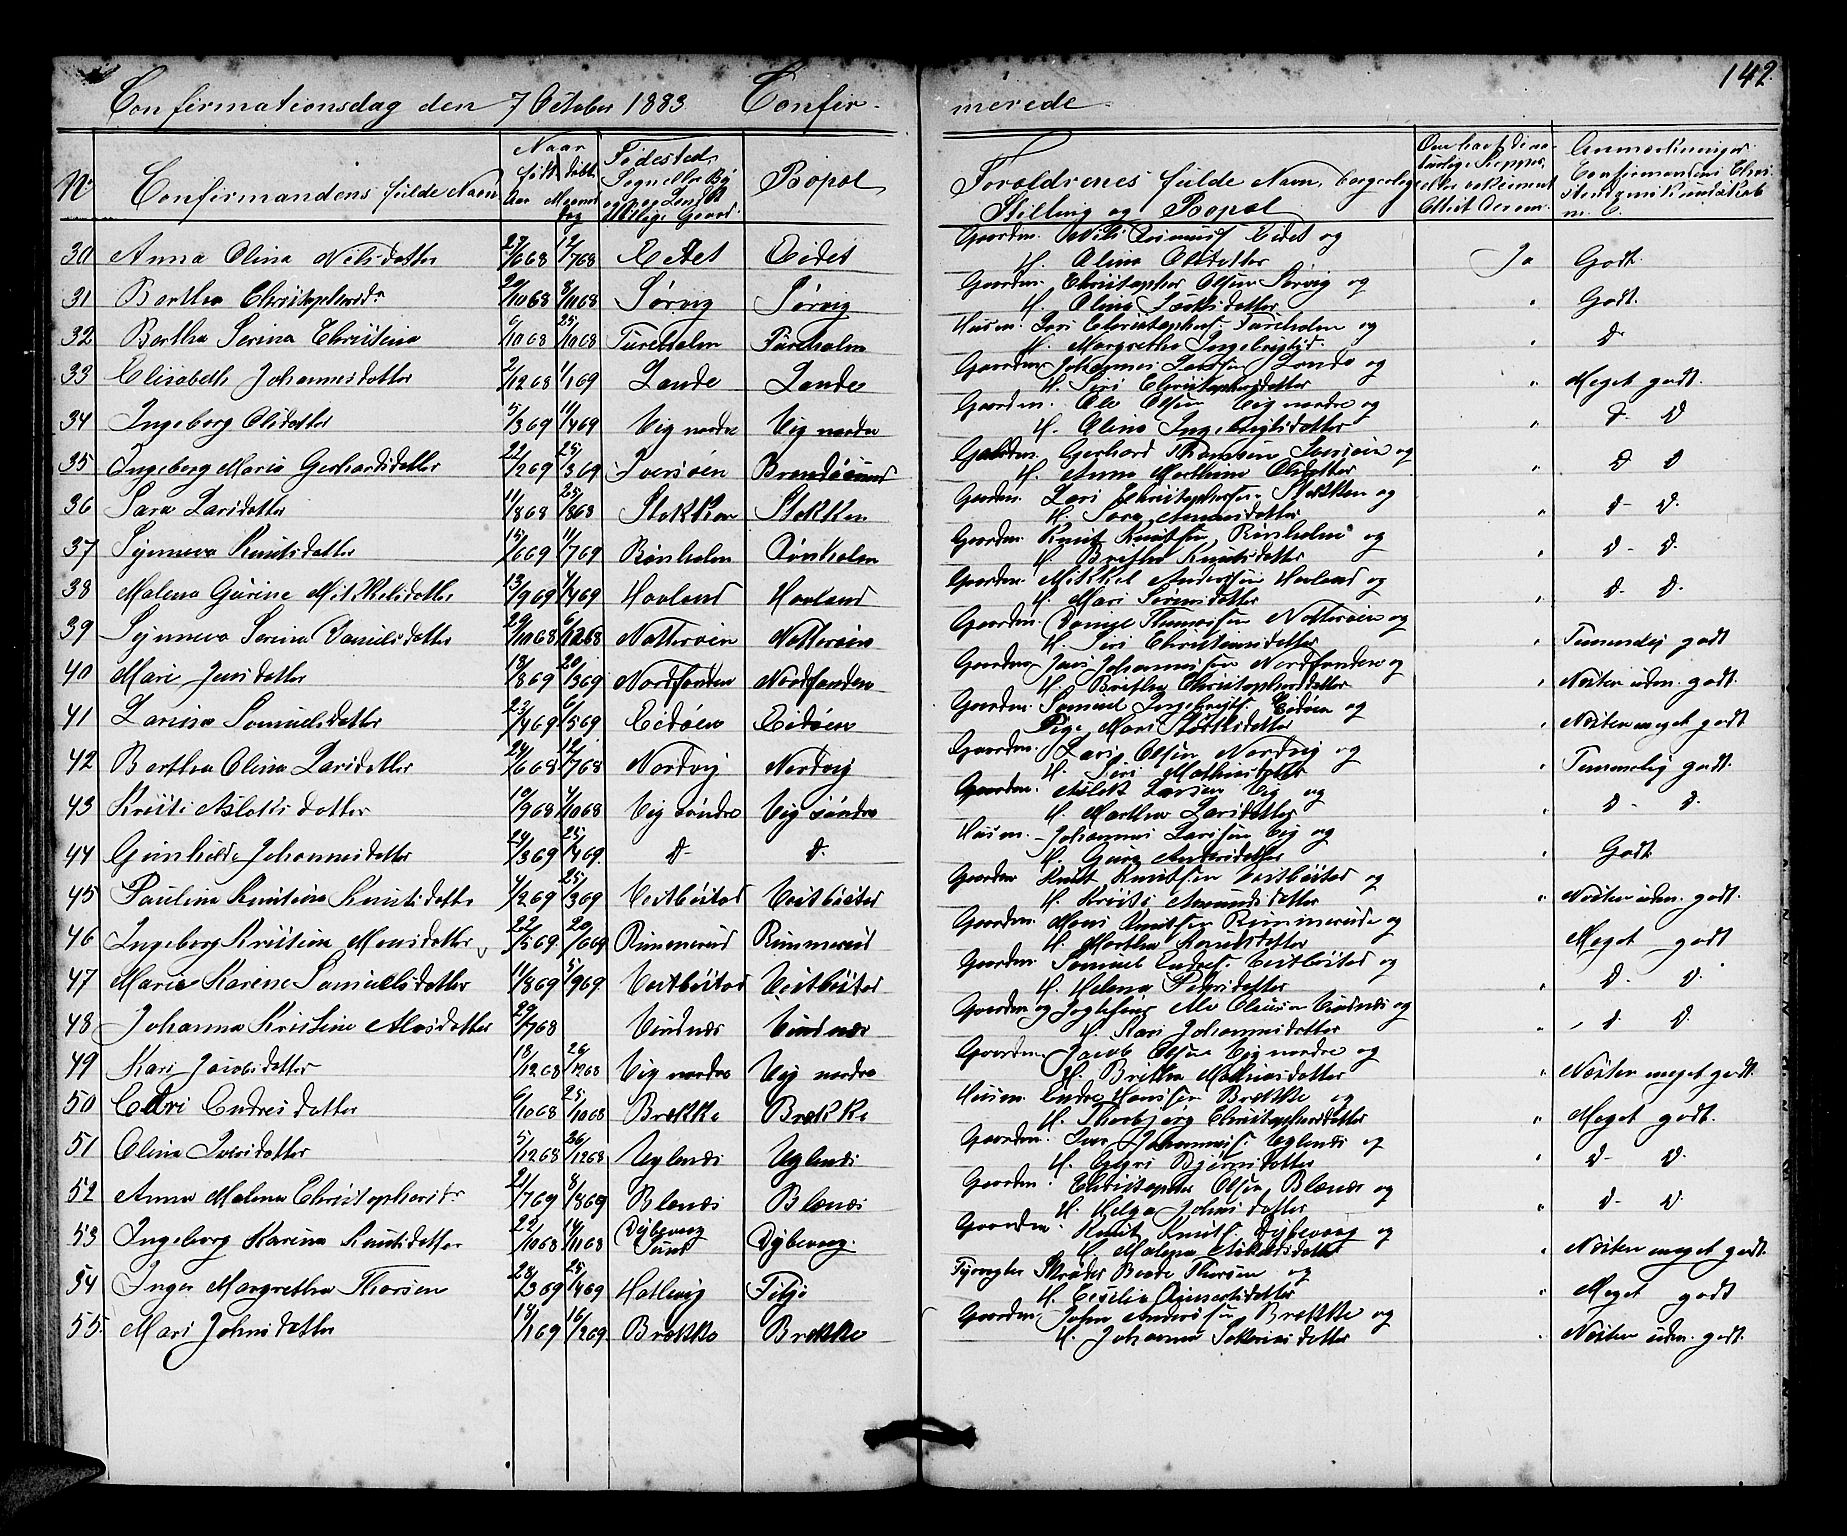 142
Confirmationsdag den 7 October 1883 Confir-merede
No Confirmandens fulde Navn Naar født døbt Aar Maaned Dag Fødested Sogn eller By Bopæl Forældrenes fulde Navn, borgerlige Stilling og Bopæl Anmærkninger Confirmandens
30 Anna Olina Nilsdatter 27/6 68 12/7 68 Eidet Eidet Gaardm. Nils Eidet og H. Olina Olsdatter Ja Godt.
31 Bertha Christophersdr 8/10 68 Sørvig Sørvig Gaardm. Christopher Olsen Sørvig og H. Olina " Godt.
32 Bertha Serina Christina 6/10 68 25/10 68 Tureholm Tureholm Husm. Lars Christophers. Tureholm og H. Margretha Ingebrigtsd. " D-
33 Elisabeth Johannesdatter 2/12 68 1/1 69 Lande Lande Gaardm. Johannes Larssen Lande og H. Siri Christophersdatter " Meget godt.
34 Ingeborg Olsdatter 5/3 69 11/4 69 Vig nordre Vig nordre Gaardm. Ole Olsen Vig nordre og H. Olina Ingebrigtsdatter " D- D
35 Ingeborg Maria Gerhardsdatter 22/2 69 25/3 69 Iversøen Brandøsund Gaardm. Gerhard Thomsen Iversøen og H. Anna Marthina Olsdatter " D D
36 Sara Larsdatter 11/8 68 Stokken Stokken Gaardm. Lars Christophersen Stokken og H. Sara " D- D.
37 Synneva Knutsdatter 11/7 69 Rønholm Rønholm Gaardm. Knut Knutsen Rønholm og H. Britha Knutsdatter " D- D.
38 Malena Gurine Mikkelsdatter Hovland Hovland Gaardm. Mikkel Andersen Hovland og H. Mari Sørensdatter " D- D.
39 Synneva Serina Danielsdatter 29/10 68 6/12 68 Nottersøen Nottersøen Gaardm. Daniel Thomassen Nottersøen og H. Siri Christiansdatter " Temmelig godt
40 Mari Jensdatter 20/3 69 Nordfonden Nordfonden Gaardm. Jens Johannessen Nordfonden og H. Britha Christophersdatter " Næsten udm. godt.
41 Larina Samuelsdatter 23/4 69 6/5 69 Eidøen Eidøen Gaardm. Samuel Ingebrigts. Eidøen og Pige Mari " Næsten meget godt
42 Bertha Olina Larsdatter 24/6 68 12/7 68 Nordvig Nordvig Gaardm. Lars Olsen Nordvig og H. Siri Mathiasdatter " Temmelig godt.
43 Kristi Aslaksdatter 4/10 68 Vig søndre Vig søndre Gaardm. Aslak Larsen Vig og H. Martha Larsdatter " D- D.
44 Gunhilde Johannesdatter 24/3 69 25/4 69 D- D. Husm. Johannes Larssen Vig og H. Guro Andersdatter " Godt
45 Paulina Knutina Knutsdatter 4/2 69 25/3 69 Vestbøstad Vestbøstad Gaardm. Knut Knutsen Vestbøstad og H. Kristi Amundsdatter " Næsten udm. godt.
46 Ingeborg Kristina Monsdatter 22/5 69 20/6 69 Rimmereid Rimmereid Gaardm. Mons Knutsen Rimmereide og H. Martha Knutsdatter Meget godt
47 Marie Karine Samuelsdatter 11/8 69 5/9 69 Vestbøstad Vestbøstad Gaardm. Samuel Endres. Vestbøstad og H. Helena " D- D.
48 Johanna Kristine Alvsdatter 29/7 68 Vindnæs Vindnæs Gaardm. og Alv Clausen Vindnæs og H. Kari Johannesdatter " D. D.
49 Kari Jacobsdatter 13/12 68 26/12 68 Vig nordre Vig nordre Gaardm. Jacob Olsen Vig nordre og H. Britha Mathiasdatter " Næsten meget godt.
50 Endresdatter 6/10 68 25/10 68 Brekke Brekke Husm. Endre Hanssen Brekke og H. Thorbjørg Christophersdatter " Meget godt.
51 Olina Iversdatter 5/12 68 26/12 68 Uglenæs Uglenæs Gaardm. Iver Johannes. Uglenæs og H. Guri Bjørnsdatter " D- D.
52 Anna Malena Christophersdr 21/7 69 8/8 69 Blænæs Blænæs Gaardm. Christopher Olsen Blænæs og H. Helga Johnsdatter " D- D.
53 Ingeborg Karina Knutsdatter 22/10 68 14/11 68 Dybevaag Sund Dybevaag. Gaardm. Knut Knuts. Dybevaag og H. Malena " Næsten meget godt
54 Inger Margretha Thorsen 28/3 69 25/4 69 Hattevig Fitje Fyrvogter Beade Thorsen og H. Cecilia " Meget godt
55. Mari Johnsdatter 18/1 69 16/2 69 Brekke Brekke Gaardm. John Andersen Brekke og H. Johanna " Næsten udm. godt.